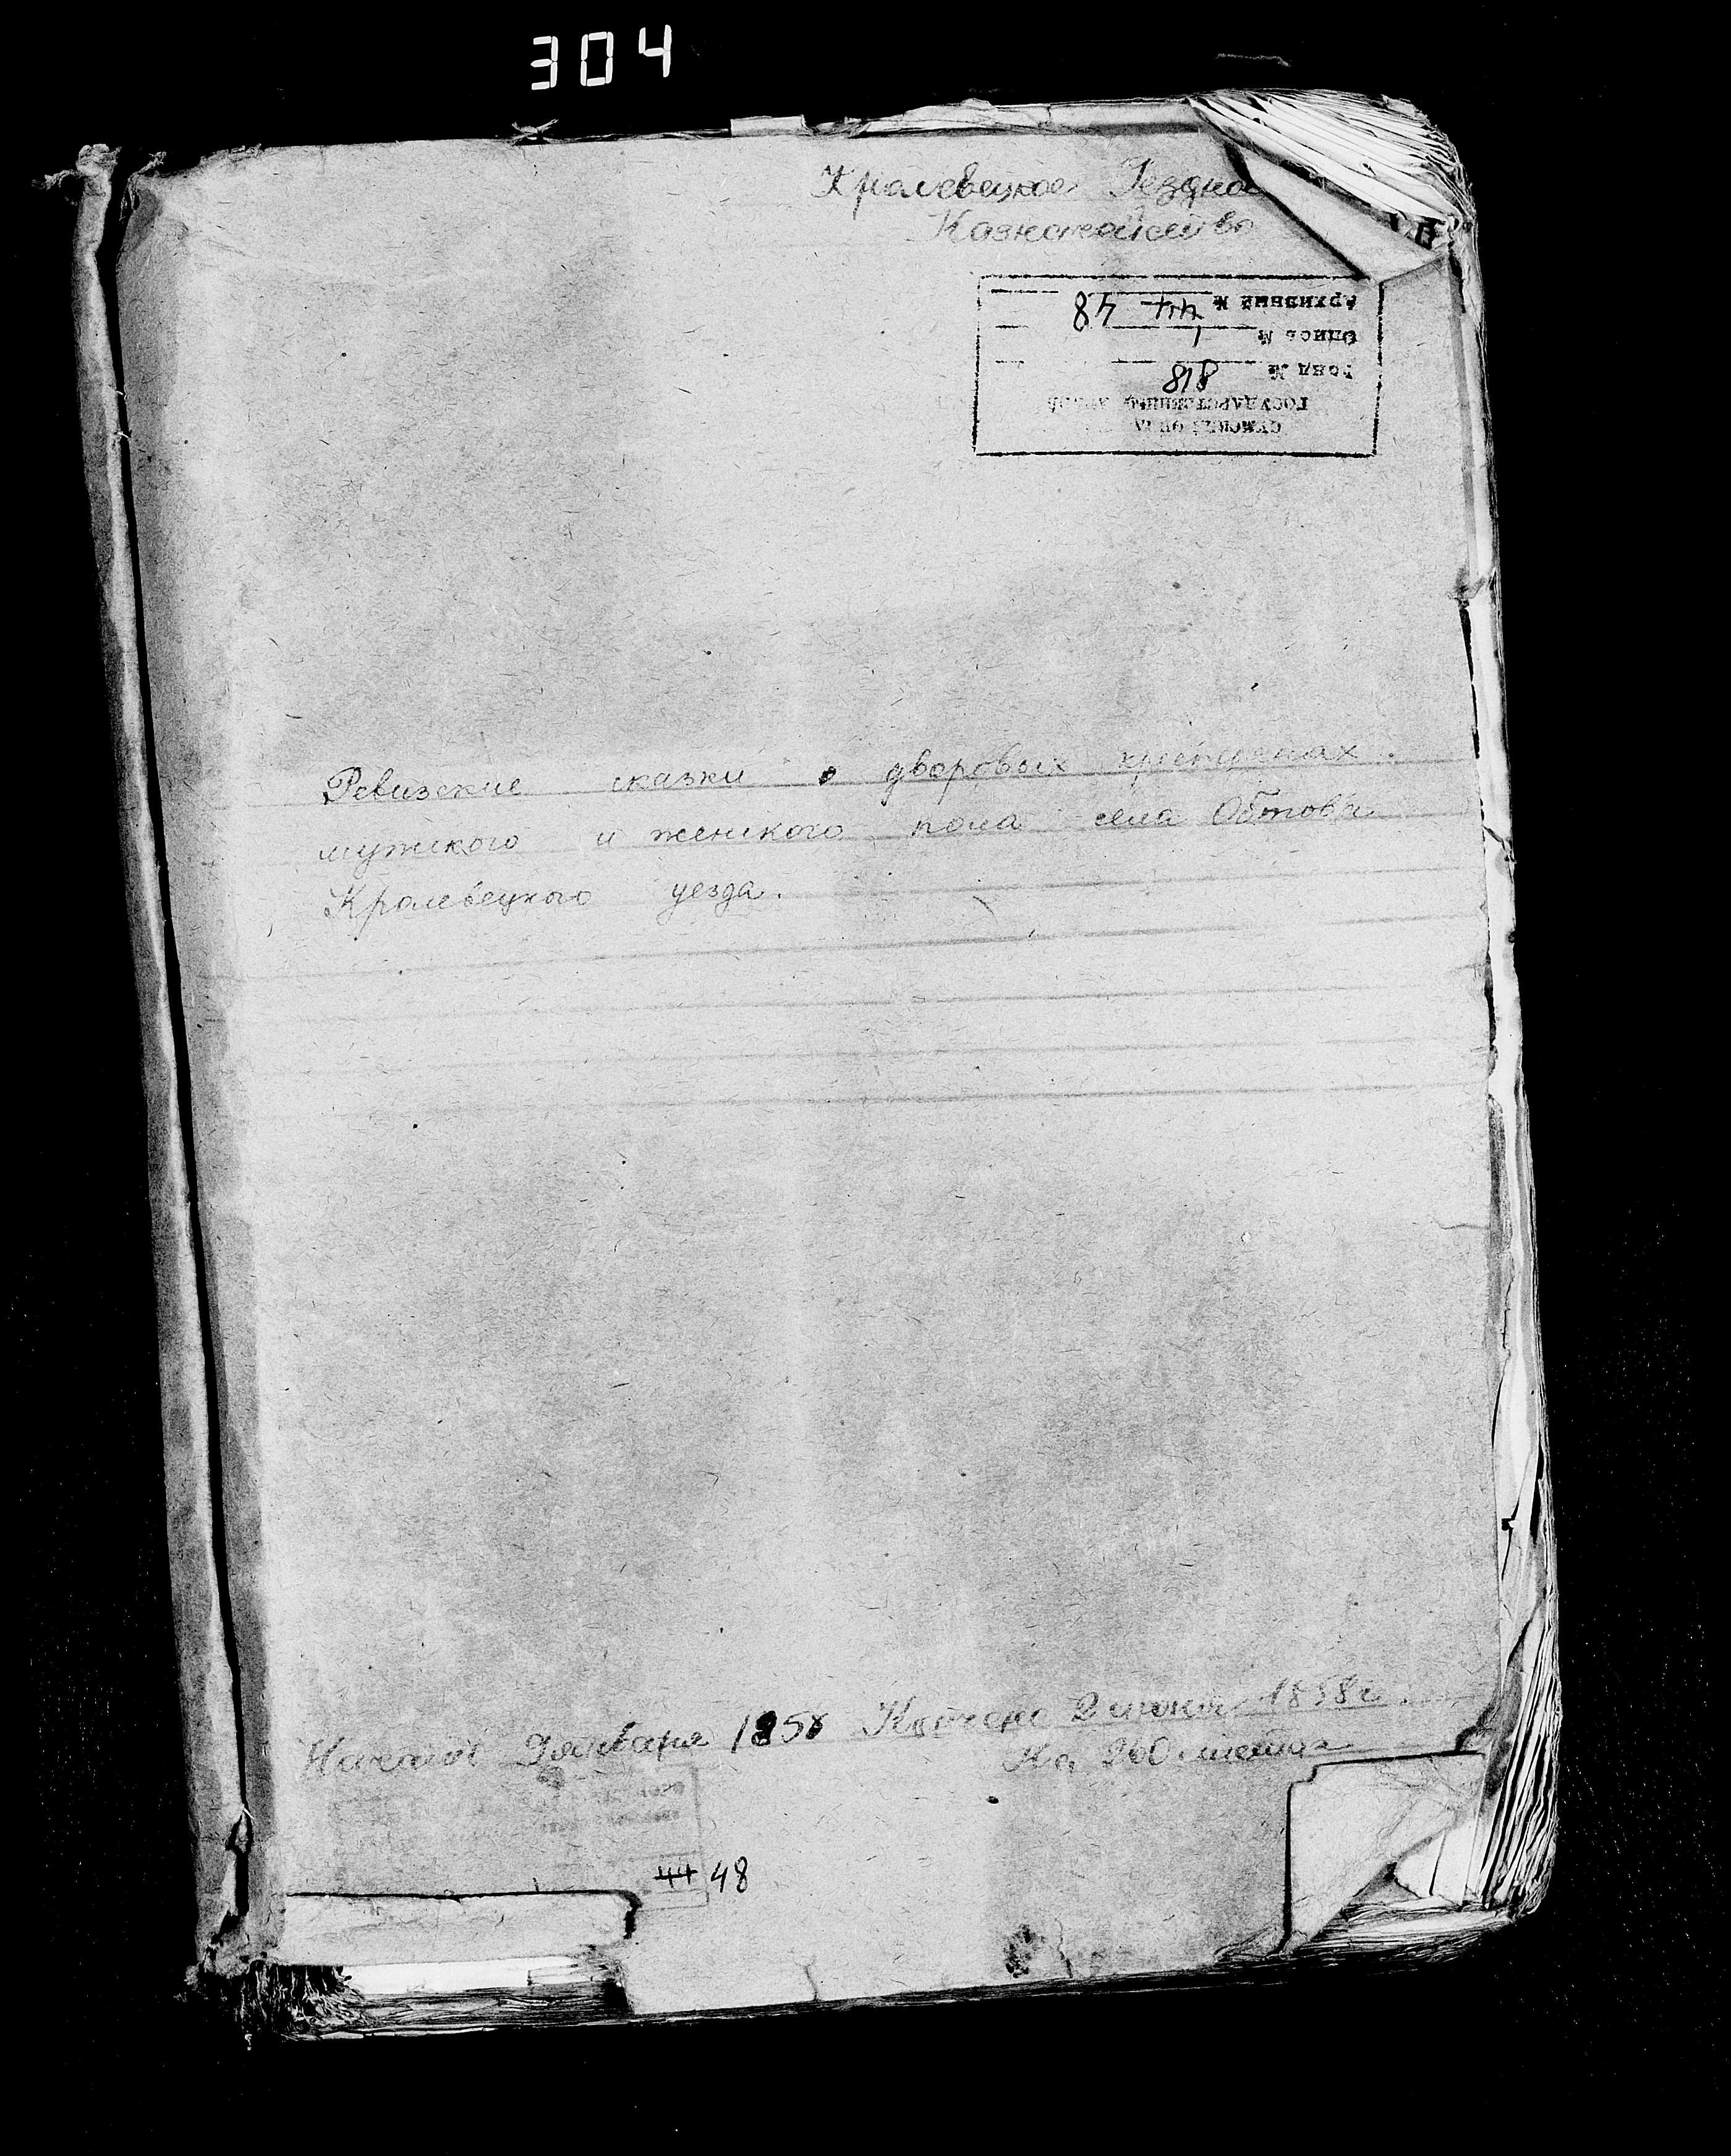 304
Кралевецкое Уездное
Казначейство
Архивный № 44 48
Опись № 1
Фонд № 818
ГОСУДАРСТВЕННЫЙ АРХИВ
СУМСКОЙ ОБЛ
Ревизские сказки о дворовых крестьянах
мужского и женского пола села Обтов
Кралевецкого уезда.
Начато Января 1858 Кончено 2 июня 1858 г.
На 260 листах
44 48